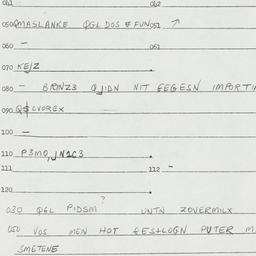 041 042
050 MASLANKE QGL DOS # FUN 051
060 — 061
070 KEJZ
080 — BRONZ3 QJIDN NIT GEGESN IMPORTI
090 Q$ CVOREX
100 —
110 P3MO, JN1C3
111 112 —
120
030 QGL PIDSM ? UNTN ZOVERMILX
050 VOS MEN HOT GESTLOGN PUTER M
SMETENE